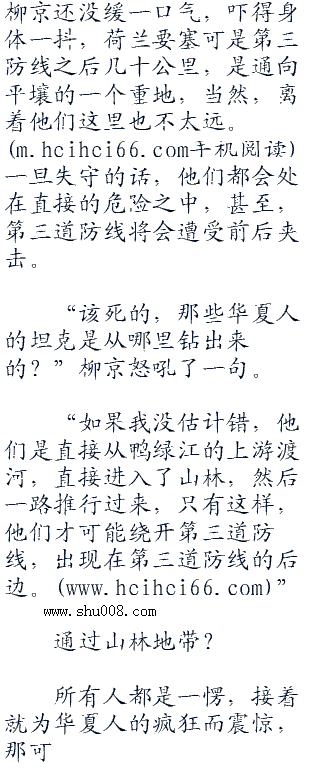 柳京还没缓一口气，吓得身
体一抖，荷兰要塞可是第三
防线之后几十公里，是通向
平壤的一个重地，当然，离
着他们这里也不太远。
(m.hcihci66.com手机阅读)
一旦失守的话，他们都会处
在直接的危险之中，甚至，
第三道防线将会遭受前后夹
击。
“该死的，那些华夏人
的坦克是从哪里钻出来
的？”柳京怒吼了一句。
“如果我没估计错，他
们是直接从鸭绿江的上游渡
河，直接进入了山林，然后
一路推行过来，只有这样，
他们才可能绕开第三道防
线，出现在第三道防线的后
边。(www.hcihci66.com)”
www.shu008.com
通过山林地带？
所有人都是一愣，接着
就为华夏人的疯狂而震惊，
那可